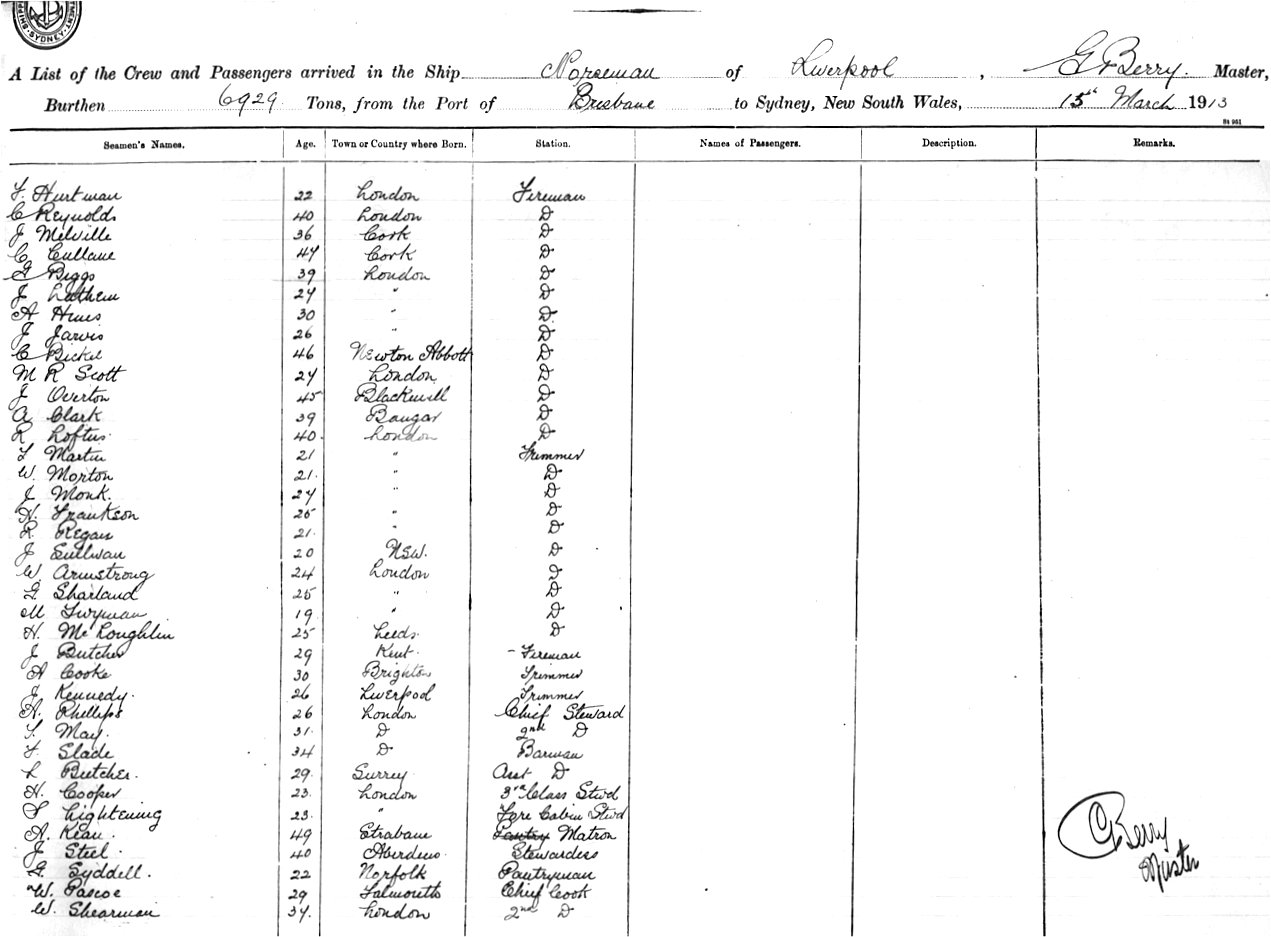 SYDNEY
A List of the Crew and Passengers arrived in the Ship Norseman of Liverpool, G Berry. Master,
Burthen 6929 Tons, from the Port of Brisbane to Sydney, New South Wales, 15th March 1913
St 961
Seamen's Names. Age. Town or Country where Born. Station. Names of Passengers. Description. Remarks.
F. Hurtman 22 London Fireman
C Reynolds 40 London D
J Melville 36 Cork D
C Cullane 44 Cork D
G Biggs 39 London D
J Lathem 24 " D
A Hines 30 " D
J Jarvis 26 " D
C Bickel 46 Newton Abbott D
M R Scott 24 London D
J Overton 45 Blackwell D
A Clark 39 Bangar D
R Loftus 40. London D
F Martin 21 " Trimmer
W. Morton 21. " D
J Monk. 24 " D
H. Frankson 25 " D
R. Regan 21. " D
J Sullivan 20 NSW. D
W. Armstrong 24 London D
G Sharland 25 " D
M Twyman 19. " D
H. McLoughlin 25 Leeds. D
J Butcher 29 Kent. - Fireman
A Cooke 30 Brighton Trimmer
J Kennedy. 26 Liverpool Trimmer
A. Phellips 26 London Chief Steward
T. May. 31. D 2nd D
F. Slade 34 D Barman
L Butcher. 29. Surrey. Asst D
H. Cooper 23. London 3rd Class Stwd
Lightening 23. " Fore Cabin Stwd
A. Kean. 49 Strabane Pantry Matron
J Steel. 40 Aberdeen Stewardess
G Syddell. 22 Norfolk Pantryman
W. Pascoe 29 Falmouth Chief Cook
W. Shearman 34. London 2nd D
G Berry
Master